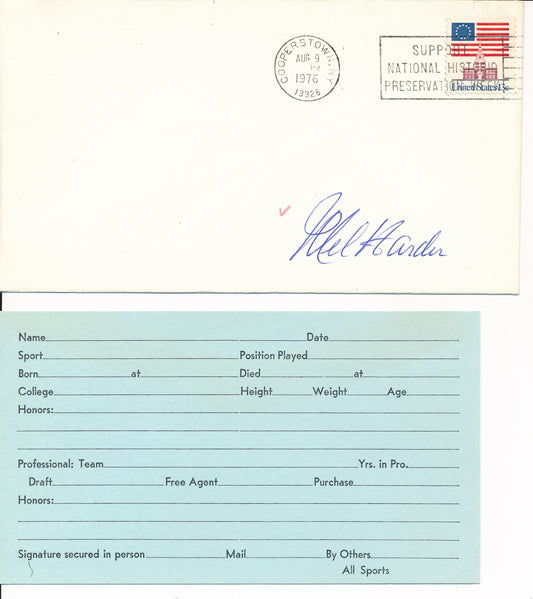 COOPERSTOWN, N.Y.
AUG 9
PM
1976
13326
SUPPORT
NATIONAL HISTORIC
PRESERVATION WEEK
United States 13c
Mel Harder
Name Date
Sport Position Played
Born at Died at
College Height Weight Age
Honors:
Professional: Team Yrs. in Pro.
Draft Free Agent Purchase
Honors:
Signature secured in person Mail By Others
All Sports